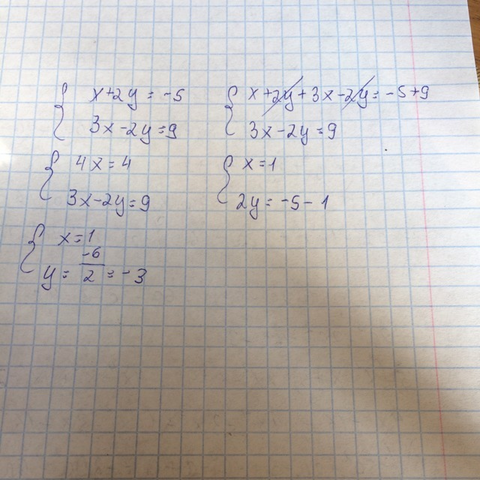 { x+2y = -5
3x-2y=9
{ x+2y+3x-2y=-5+9
3x-2y=9
{ 4x=4
3x-2y=9
{ x=1
2y=-5-1
{ x=1
y= -6/2 = -3